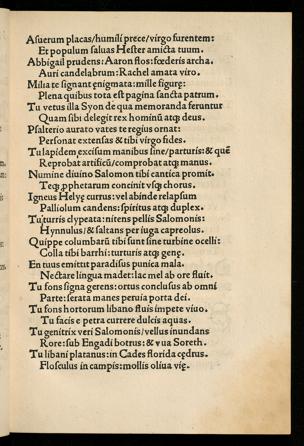 Asuerum placas/humili prece/virgo furentem:
Et populum saluas Hester amicta tuum.
Abbigail prudens: Aaron flos: fœderis archa.
Auri candelabrum: Rachel amata viro.
Milia te signant ęnigmata: mille figurę:
Plena quibus tota est pagina sancta patrum.
Tu vetus illa Syon de qua memoranda feruntur
Quam sibi delegit rex hominū atqꝫ deus.
Psalterio aurato vates te regius ornat:
Personat extensas & tibi virgo fides.
Tu lapidem excisum manibus sine/parturis: & quē
Reprobat artificū/comprobat atqꝫ manus.
Numine diuino Salomon tibi cantica promit.
Teqꝫ ꝓphetarum concinit vſqꝫ chorus.
Igneus Helyę currus: vel abinde relapsum
Palliolum candens: spiritus atqꝫ duplex.
Tu turris clypeata: nitens pellis Salomonis:
Hynnulus/& saltans per iuga capreolus.
Quippe columbarū tibi sunt sine turbine ocelli:
Colla tibi barrhi: turturis atqꝫ genę.
En tuus emittit paradisus punica mala.
Nectare lingua madet: lac mel ab ore fluit.
Tu fons signa gerens: ortus conclusus ab omni
Parte: serata manes peruia porta dei.
Tu fons hortorum libano fluis impete viuo.
Tu facis e petra currere dulcis aquas.
Tu genitrix veri Salomonis/vellus inundans
Rore: sub Engadi botrus: & vua Soreth.
Tu libani platanus: in Cades florida cędrus.
Flosculus in campis: mollis oliua vię.